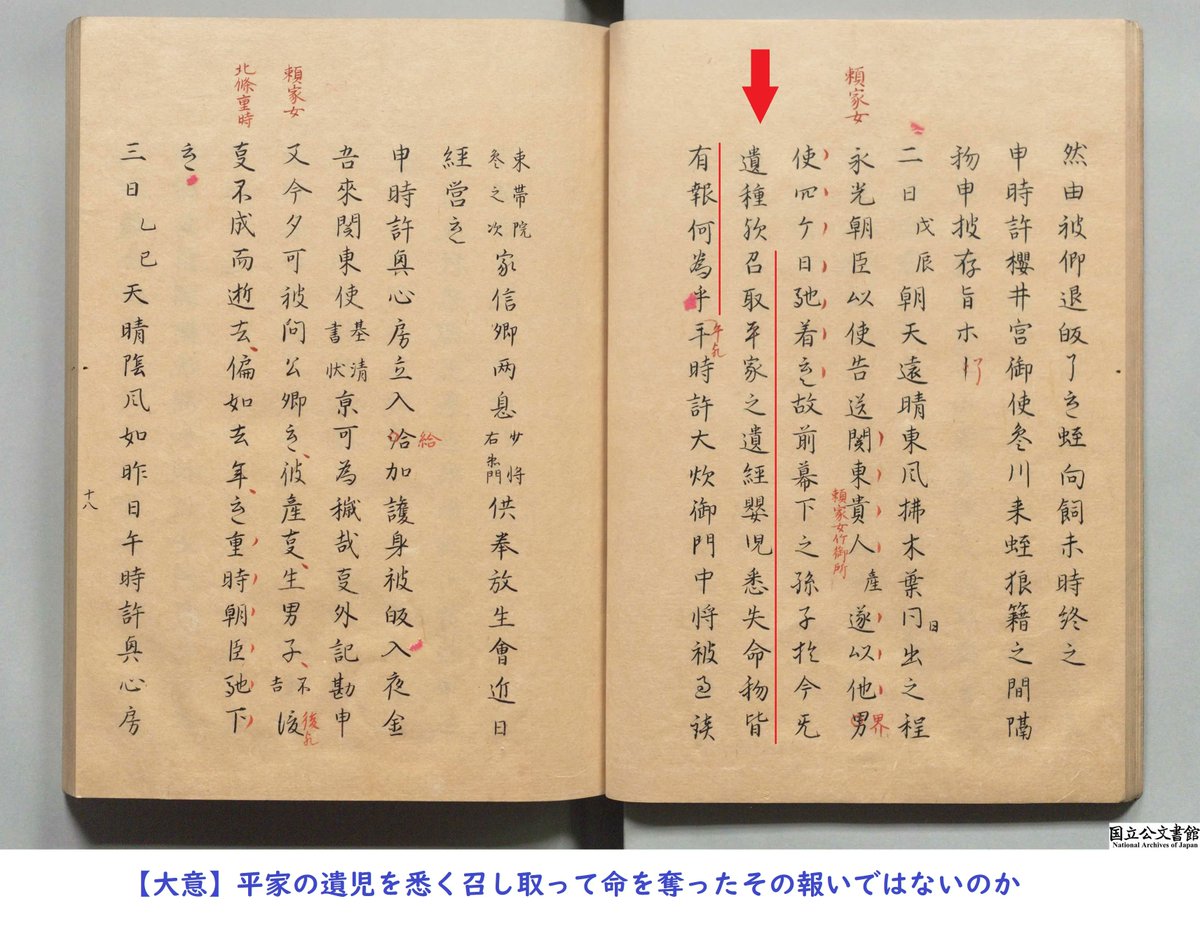 然由被仰退皈了云蛭向飼未時終之
申時許櫻井宮御使参川来蛭狼籍之間隔
物申披存旨ホ了
二日戊辰朝天遠晴東風拂木葉同日出之程
頼家女
永光朝臣以使告送関東貴人産遂以他男
界
頼家女竹御所
使四ケ日馳着云故前幕下之孫子於今旡
遺種歟召取平家之遺經嬰児悉失命物皆
有報何為乎午時許大炊御門中将被過談
午歟
東帯院
参之次
家信卿両息
少将
右衛門
供奉放生會近日
経営云
申時許興心房立入洽加護身被皈入夜金
給
吾来関東使
基清
書状
京可為穢哉夏外記勘申
頼家女
又今夕可被問公卿云彼産夏生男子不
吉
後歟
北條重時
夏不成而逝去偏如去年云重時朝臣馳下
云
三日乙巳天晴陰風如昨日午時許興心房
十八
国立公文書館
National Archives of Japan
【大意】平家の遺児を悉く召し取って命を奪ったその報いではないのか